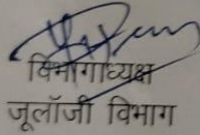 विभागाध्यक्ष
जूलॉजी विभाग